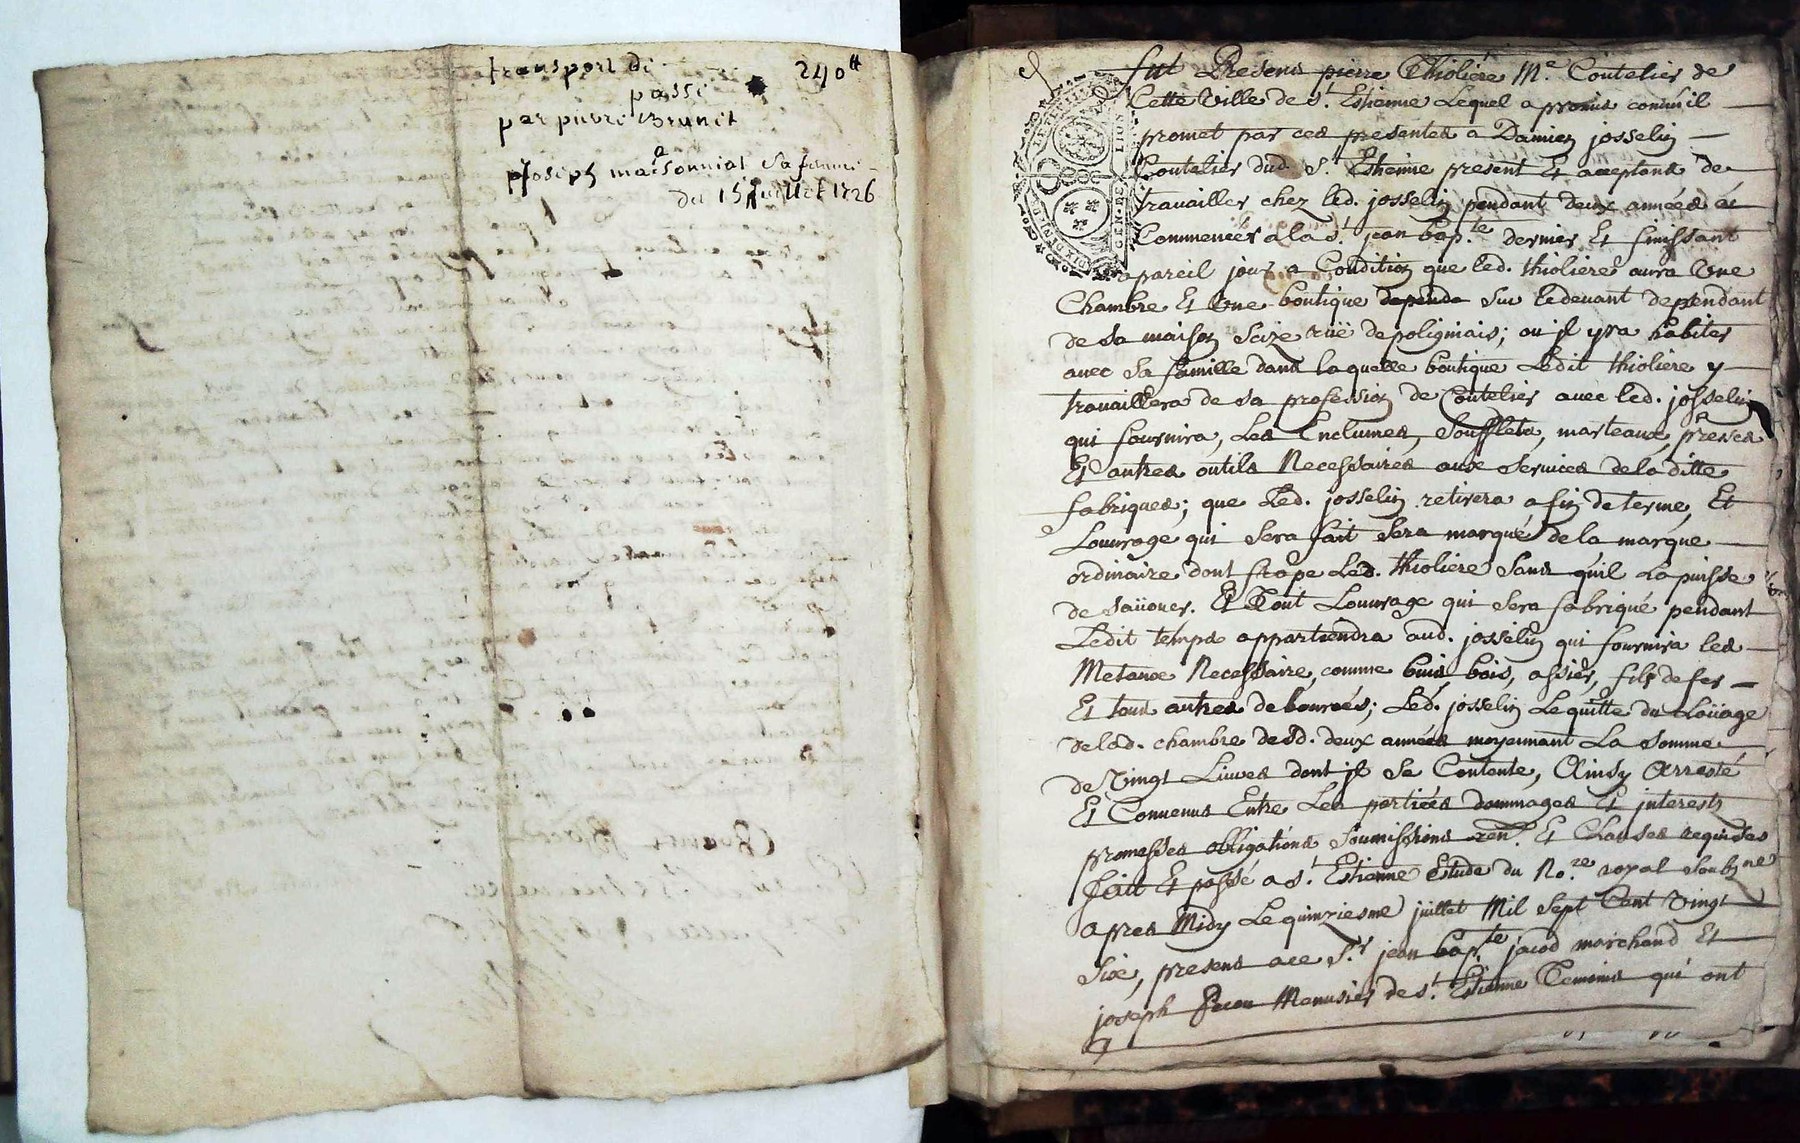 transport de
240 ₶
passé
par pierre Brunet
a
joseph maisonnial sa femme
du 15 juillet 1726
fut Presens pierre Thioliere Me. Coutelier de
Cette Ville de St. Estienne Lequel a promis comm'il
promet par ces presentes a Damien josselin
Coutelier dud. St. Estienne present Et aceptant de
travailler chez led. josselin pendant deux années
Commencées a la St. jean bap.te dernier Et finissant
a pareil jour a Condition que led. thioliere aura Une
Chambre Et Une boutique depende sur ledeuant dependant
de sa maison Scize ruë de polignais; ou jl yra habiter
auec Sa famille dans laquelle boutique Ledit thioliere y
trauaillera de sa profession de Coutelier auec led. josselin
qui fournira, Les Enclumes, Soufflets, marteaux, presses
Et autres outils Necessaires aux seruices de la ditte
fabriques; que Led. josselin retirera a fin de terme, Et
Louurage qui Sera fait Sera marqué de la marque
ordinaire dont frape Led. thioliere Sans quil La puisse
de saüouer. Et Tout Louurage qui Sera fabriqué pendant
Ledit temps appartiendra aud. josselin qui fournira les
Metaux Necessaire, comme buis, bois, assier, fils de fer
Et tous autres debourcés; Led. josselin Le quitte du Loüage
de lad. chambre desd. deux années moyennant La somme
de Vingt Liures dont jl Se Contente, Ainsy Arresté
Et Conuenus Entre Les parties dommages Et interests
promesses obligations Soumissions ren.. Et Clauses requises
fait Et passé a St. Estienne Estude du No.re royal Soubne
apres Midy Le quinziesme juillet Mil Sept Cent Vingt
Six, presens a ce Sr. jean bap.te jacod marchand Et
joseph Menusier de St. Estienne Temoins qui ont